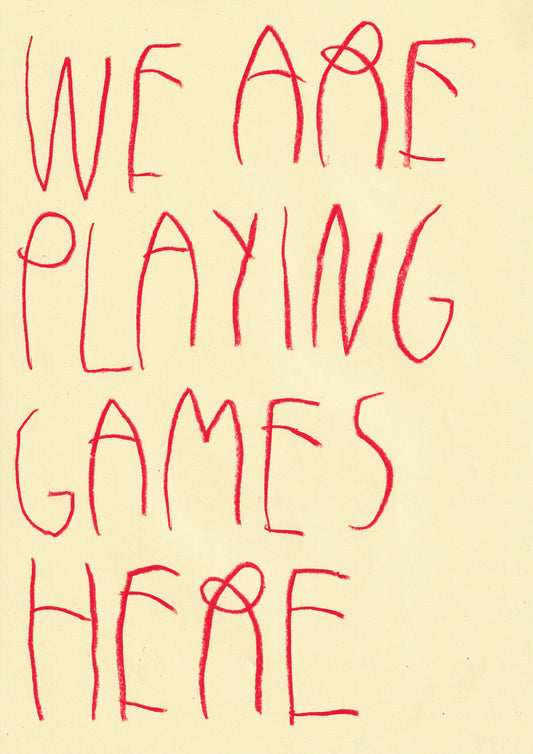 WE ARE
PLAYING
GAMES
HERE